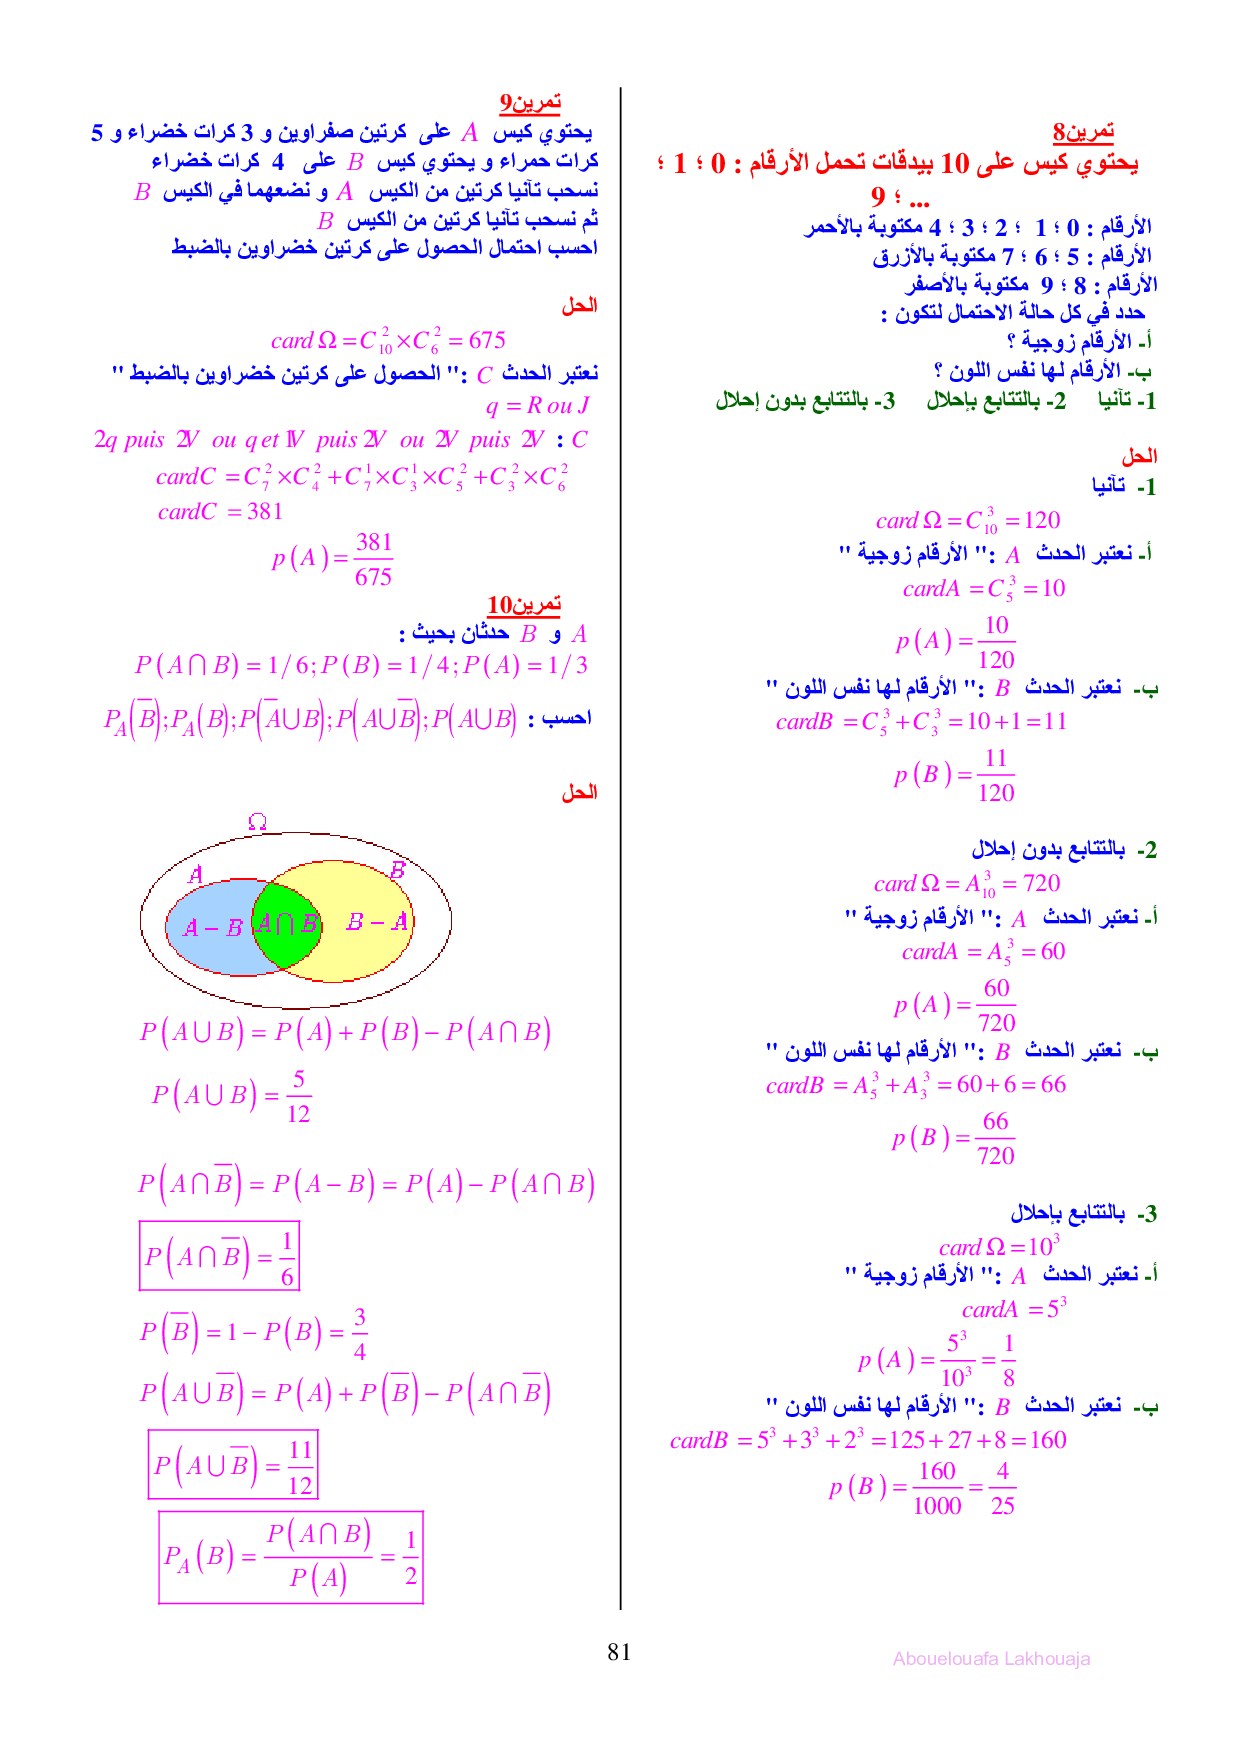 تمرين8
يحتوي كيس على 10 بيدقات تحمل الأرقام : 0 ؛ 1 ؛
... ؛ 9
الأرقام : 0 ؛ 1 ؛ 2 ؛ 3 ؛ 4 مكتوبة بالأحمر
الأرقام : 5 ؛ 6 ؛ 7 مكتوبة بالأزرق
الأرقام : 8 ؛ 9 مكتوبة بالأصفر
حدد في كل حالة الاحتمال لتكون :
أ- الأرقام زوجية ؟
ب- الأرقام لها نفس اللون ؟
1- تآنيا 2- بالتتابع بإحلال 3- بالتتابع بدون إحلال
الحل
1- تآنيا
card Ω = C_{10}^{3} = 120
أ- نعتبر الحدث A :" الأرقام زوجية "
cardA = C_5^3 = 10
p(A) = 10/120
ب- نعتبر الحدث B :" الأرقام لها نفس اللون "
cardB = C_5^3 + C_3^3 = 10 + 1 = 11
p(B) = 11/120
2- بالتتابع بدون إحلال
card Ω = A_{10}^{3} = 720
أ- نعتبر الحدث A :" الأرقام زوجية "
cardA = A_5^3 = 60
p(A) = 60/720
ب- نعتبر الحدث B :" الأرقام لها نفس اللون "
cardB = A_5^3 + A_3^3 = 60 + 6 = 66
p(B) = 66/720
3- بالتتابع بإحلال
card Ω = 10^3
أ- نعتبر الحدث A :" الأرقام زوجية "
cardA = 5^3
p(A) = 5^3/10^3 = 1/8
ب- نعتبر الحدث B :" الأرقام لها نفس اللون "
cardB = 5^3 + 3^3 + 2^3 = 125 + 27 + 8 = 160
p(B) = 160/1000 = 4/25
تمرين9
يحتوي كيس A على كرتين صفراوين و 3 كرات خضراء و 5
كرات حمراء و يحتوي كيس B على 4 كرات خضراء
نسحب تآنيا كرتين من الكيس A و نضعهما في الكيس B
ثم نسحب تآنيا كرتين من الكيس B
احسب احتمال الحصول على كرتين خضراوين بالضبط
الحل
card Ω = C_{10}^{2} × C_6^2 = 675
نعتبر الحدث C :" الحصول على كرتين خضراوين بالضبط "
q = R ou J
C : 2q puis 2V ou q et 1V puis 2V ou 2V puis 2V
cardC = C_7^2 × C_4^2 + C_7^1 × C_3^1 × C_5^2 + C_3^2 × C_6^2
cardC = 381
p(A) = 381/675
تمرين10
A و B حدثان بحيث :
P(A∩B) = 1/6; P(B) = 1/4; P(A) = 1/3
احسب : P_A(B̅); P_A(B); P(A̅∪B); P(A∪B̅); P(A∪B)
الحل
Ω
A B
A − B A∩B B − A
P(A∪B) = P(A) + P(B) − P(A∩B)
P(A∪B) = 5/12
P(A∩B̅) = P(A − B) = P(A) − P(A∩B)
P(A∩B̅) = 1/6
P(B̅) = 1 − P(B) = 3/4
P(A∪B̅) = P(A) + P(B̅) − P(A∩B̅)
P(A∪B̅) = 11/12
P_A(B) = P(A∩B)/P(A) = 1/2
81
Abouelouafa Lakhouaja